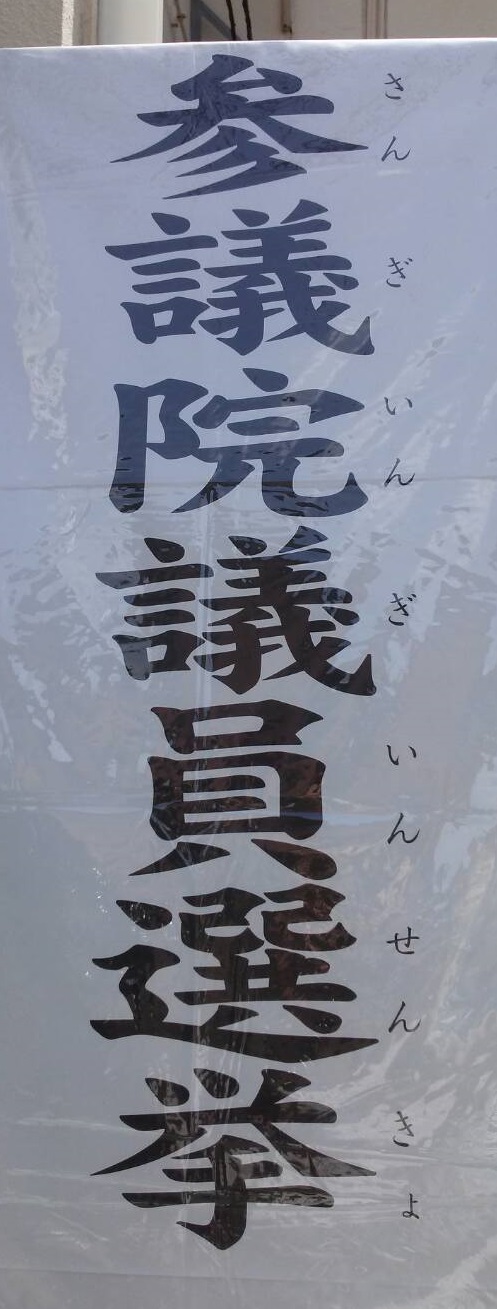 参議院議員選挙
さんぎいんぎいんせんきょ